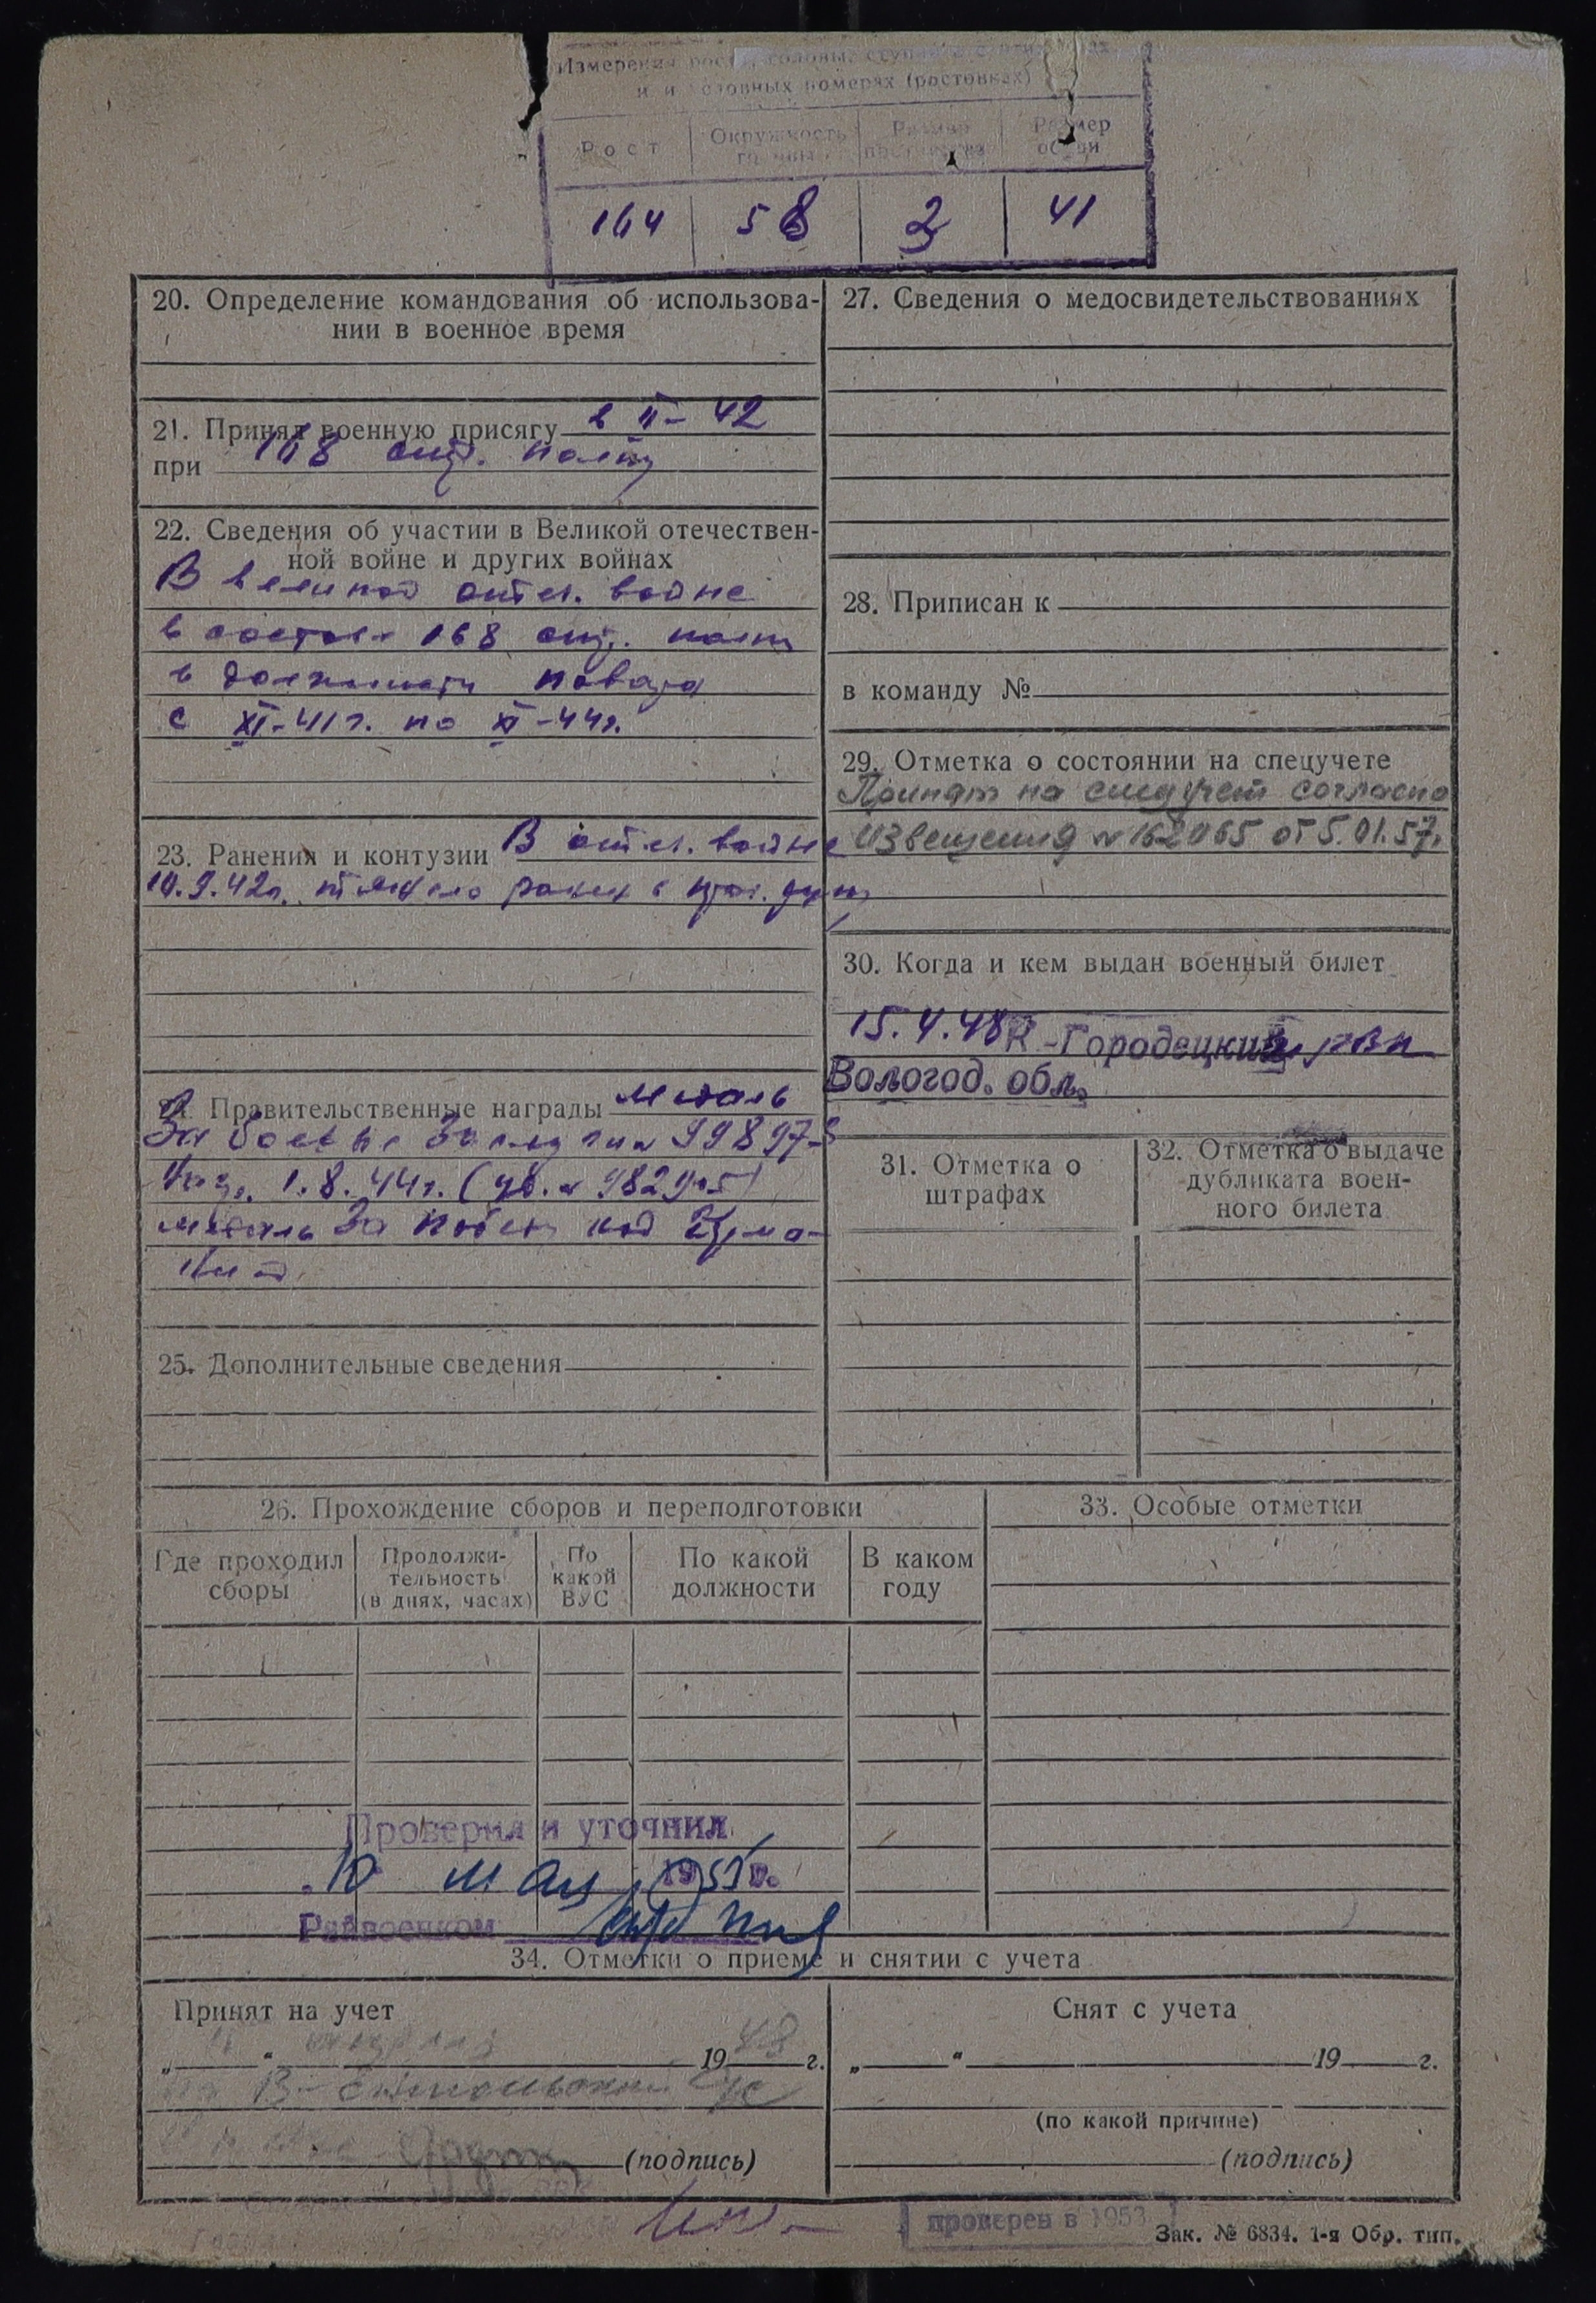 Измерения роста, головы, ступни в сантиметрах
и условных номерах (ростовках)
Рост
Окружность головы
Размер
Размер обуви
164 58 2 41
20. Определение командования об использова-
нии в военное время
21. Принял военную присягу в II-42
при 168 стр. полку
22. Сведения об участии в Великой отечествен-
ной войне и других войнах
В великой отеч. войне
в составе 168 стр. полка
в должности повара
с XI-41г. по XI-44г.
23. Ранения и контузии В отеч. войне
10.9.42г. тяжело ранен в прав. руку
24. Правительственные награды медаль
За боевые заслуги
1.8.44г. (уд. №
медаль За победу над Герма-
нией
25. Дополнительные сведения
26. Прохождение сборов и переподготовки
Где проходил сборы
Продолжи-
тельность
(в днях, часах)
По
какой
ВУС
По какой
должности
В каком
году
Проверил и уточнил
10 мая 1955 г.
Райвоенком
27. Сведения о медосвидетельствованиях
28. Приписан к
в команду №
29. Отметка о состоянии на спецучете
Принят на спецучет согласно
извещения № 162065 от 5.01.57г.
30. Когда и кем выдан военный билет
15.4.48 К-Городецким РВК
Вологод. обл.
31. Отметка о
штрафах
32. Отметка о выдаче
дубликата воен-
ного билета
33. Особые отметки
34. Отметки о приеме и снятии с учета
Принят на учет
„ “ апреля 1948 г.
(подпись)
Снят с учета
„ “ 19 г.
(по какой причине)
(подпись)
проверен в 1953
Зак. № 6834. 1-я Обр. тип.